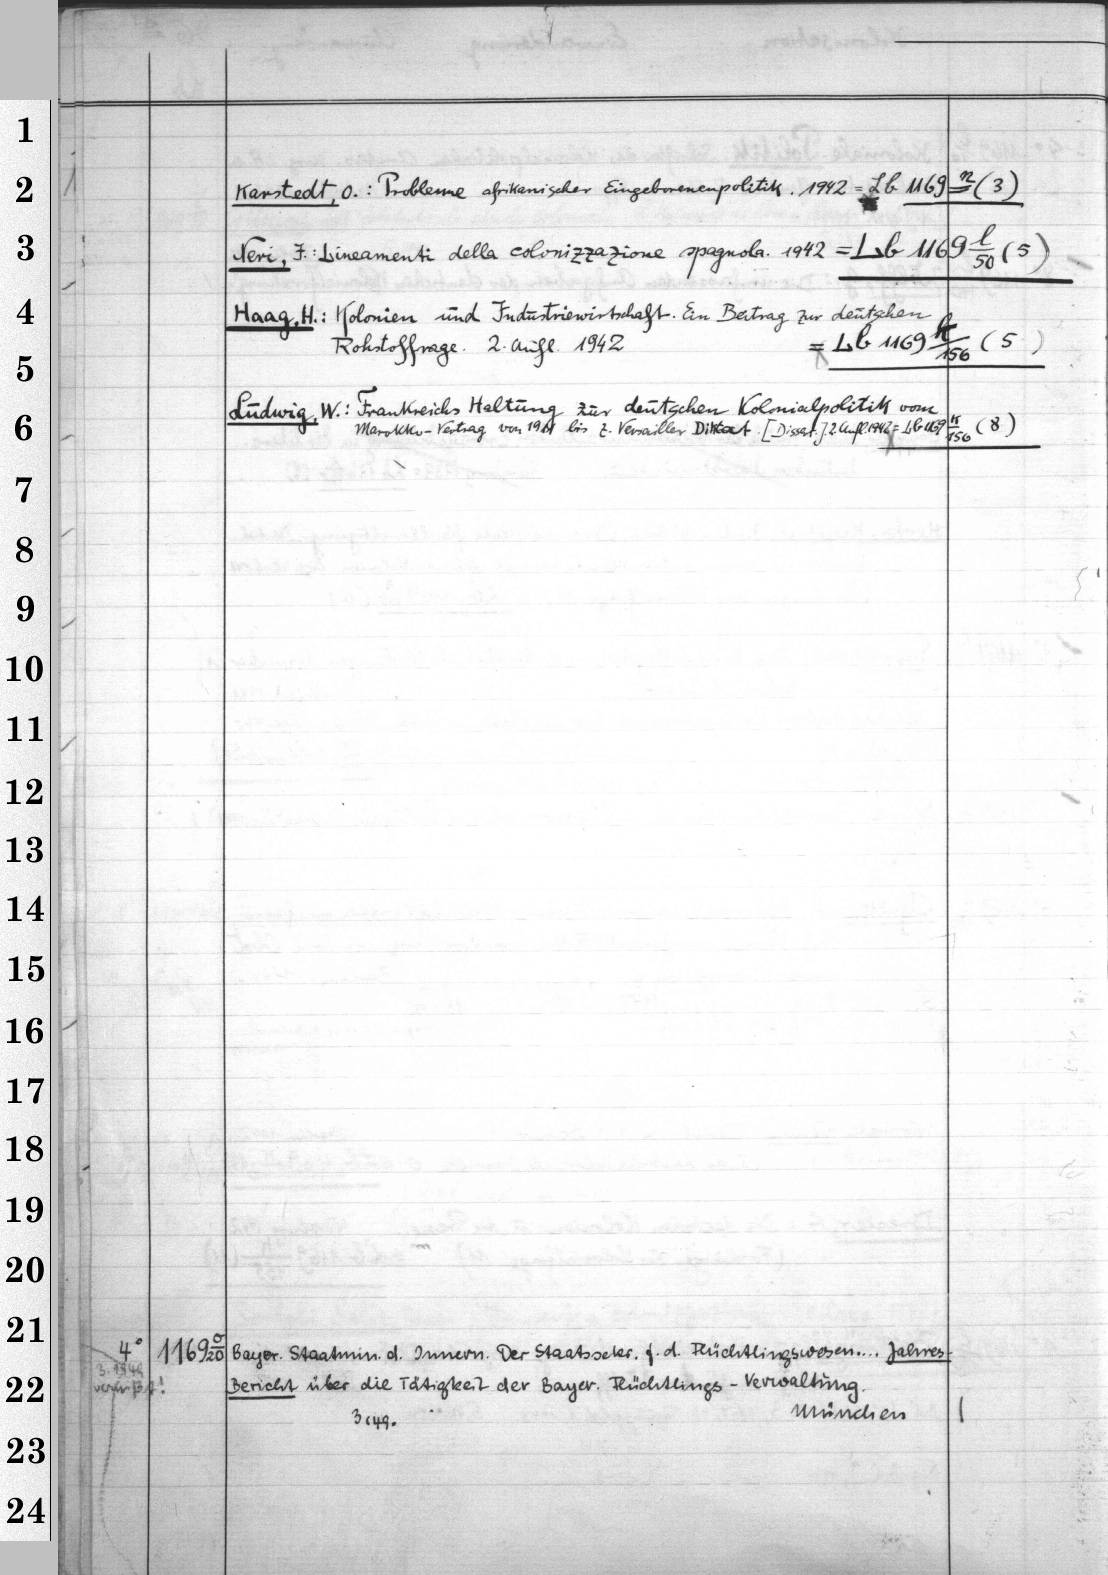 1
2
3
4
5
6
7
8
9
10
11
12
13
14
15
16
17
18
19
20
21
22
23
24
Karstedt, O.: Probleme afrikanischer Eingeborenenpolitik. 1942 = Lb 1169 n (3)
Neri, F.: Lineamenti della colonizzazione spagnola. 1942 = Lb 1169 l/50 (5)
Haag, H.: Kolonien und Industriewirtschaft. Ein Beitrag zur deutschen
Rohstoffrage. 2. Aufl. 1942 = Lb 1169 k/156 (5)
Ludwig, W.: Frankreichs Haltung zur deutschen Kolonialpolitik vom
Marokko-Vertrag von 1911 bis z. Versailler Diktat. [Dissert.] 2. Aufl. 1942 = Lb 1169 k/156 (8)
4° 1169 o/20 Bayer. Staatmin. d. Innern. Der Staatssekr. f. d. Flüchtlingswesen.... Jahres-
Bericht über die Tätigkeit der Bayer. Flüchtlings-Verwaltung.
3.1949
München